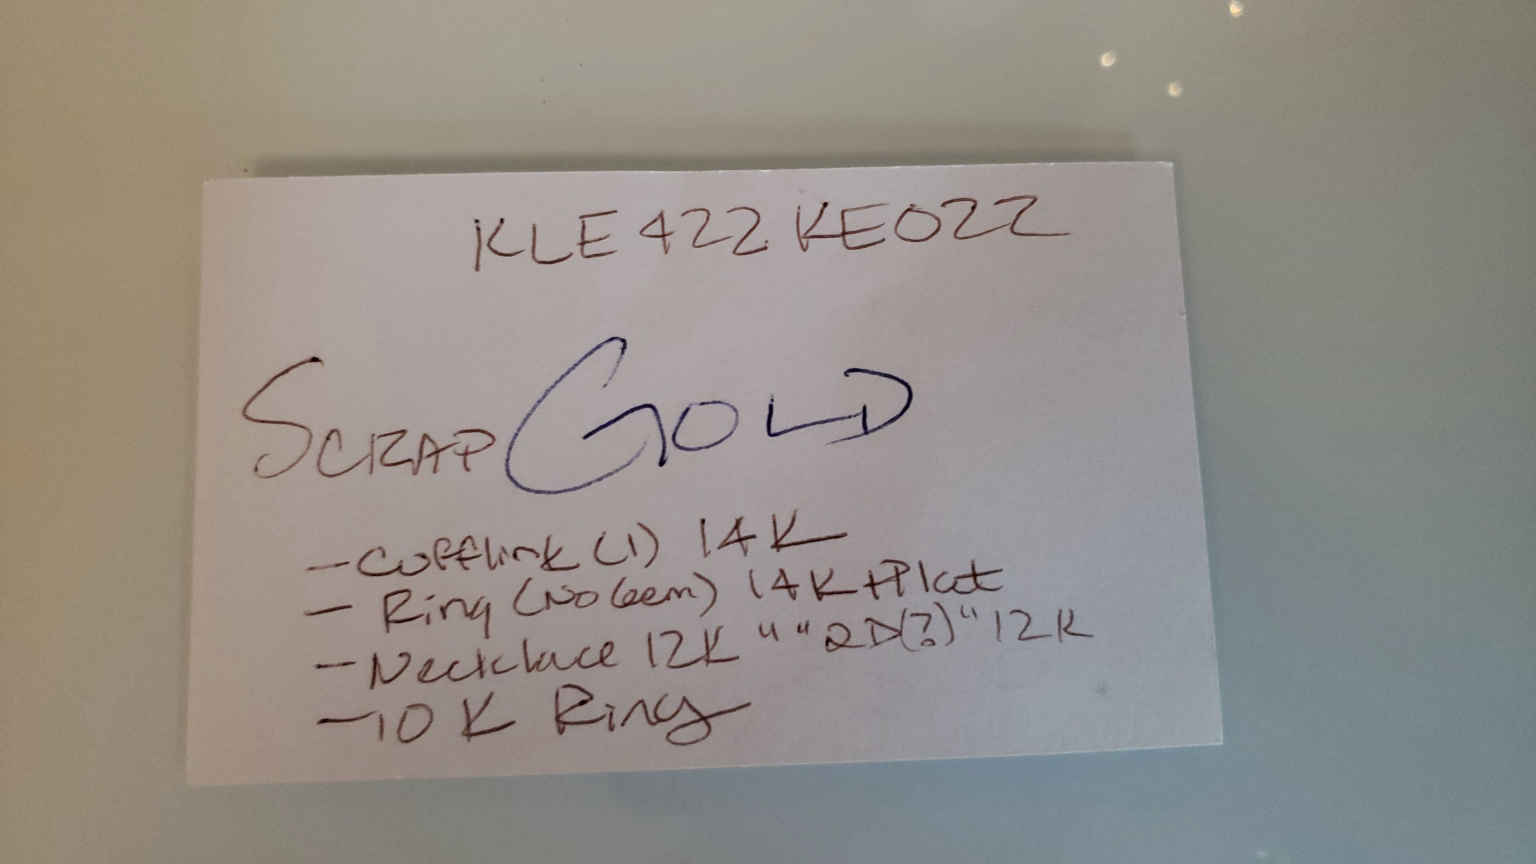 KLE422KE022
SCRAP GOLD
- Cufflink (1) 14K
- Ring (No Gem) 14K + Plat
- Necklace 12K " " 2D(?)" 12K
- 10K Ring